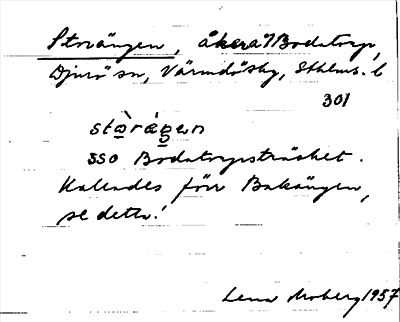 Storängen, åkera? Bodatorp,
Djurö sn, Värmdö skg, Sthlms. l
301
stòrágen
SSO Bodatorpsträsket.
Kallades förr Bakängen,
se detta!
Lena Moberg 1957